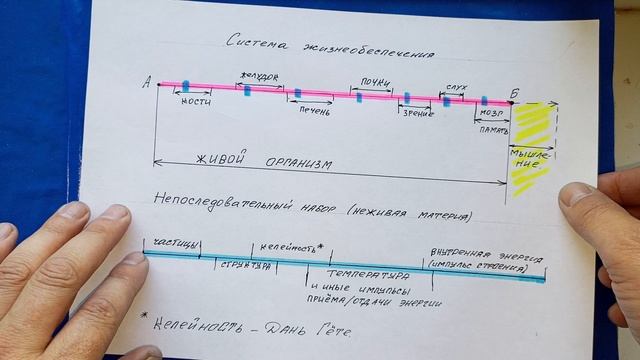 Система жизнеобеспечения
А желудок почки слух Б
кости печень зрение мозг
память
мышле-
ние.
живой организм
Непоследовательный набор (неживая материя)
частицы келейность* внутренняя энергия
(импульс строения)
структура температура
и иные импульсы
приёма/отдачи энергии
* Келейность – дань Гёте.